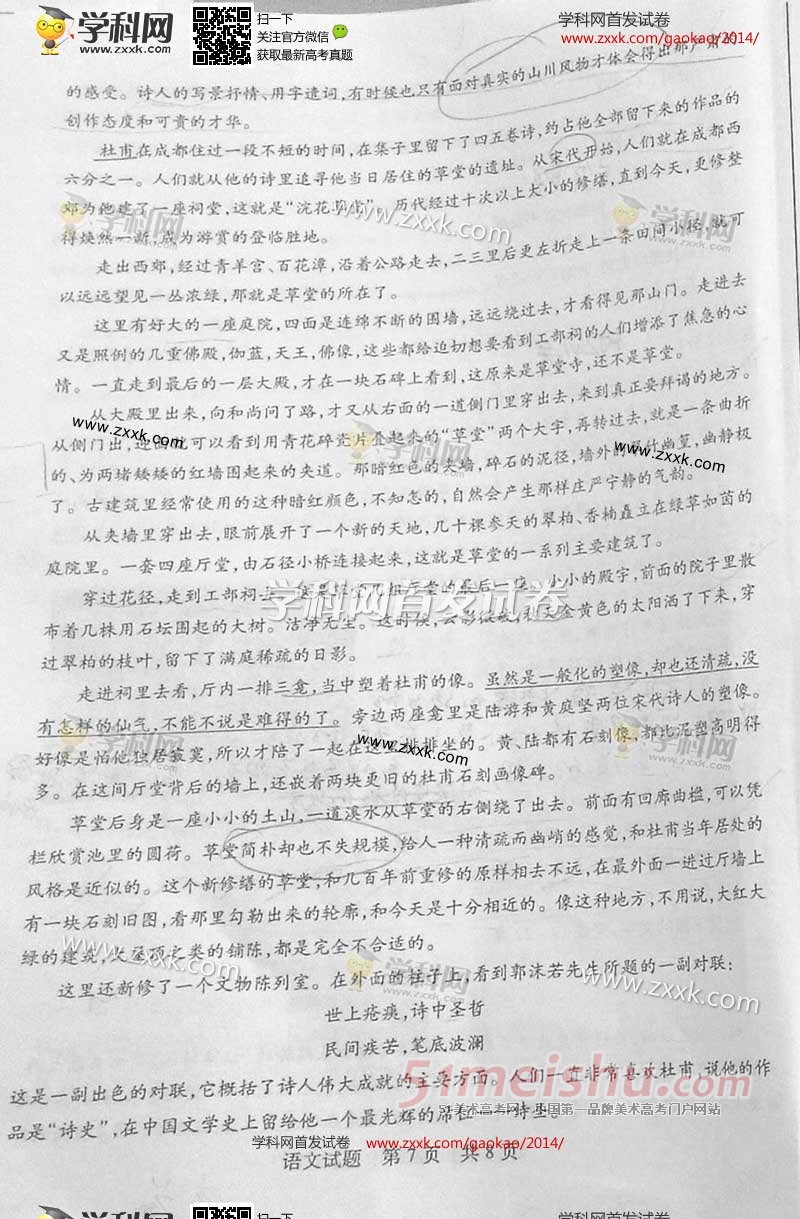 学科网
www.zxxk.com
扫一下
关注官方微信
获取最新高考真题
学科网首发试卷
www.zxxk.com/gaokao/2014/
的感受。诗人的写景抒情、用字遣词,有时候也只有面对真实的山川风物才体会得出那严肃的
创作态度和可贵的才华。
杜甫在成都住过一段不短的时间,在集子里留下了四五卷诗,约占他全部留下来的作品的
六分之一。人们就从他的诗里追寻他当日居住的草堂的遗址。从宋代开始,人们就在成都西
郊为他建了一座祠堂,这就是“浣花草堂”。历代经过十次以上大小的修缮,直到今天,更修整
得焕然一新,成为游赏的登临胜地。
走出西郊,经过青羊宫、百花潭,沿着公路走去,二三里后更左折走上一条田间小径,就可
以远远望见一丛浓绿,那就是草堂的所在了。
这里有好大的一座庭院,四面是连绵不断的围墙,远远绕过去,才看得见那山门。走进去
又是照例的几重佛殿,伽蓝,天王,佛像,这些都给迫切想要看到工部祠的人们增添了焦急的心
情。一直走到最后的一层大殿,才在一块石碑上看到,这原来是草堂寺,还不是草堂。
从大殿里出来,向和尚问了路,才又从右面的一道侧门里穿出去,来到真正要拜谒的地方。
从侧门出,迎面就可以看到用青花碎瓷片叠起来的“草堂”两个大字,再转过去,就是一条曲折
的、为两堵矮矮的红墙围起来的夹道。那暗红色的夹墙,碎石的泥径,墙外的翠竹幽篁,幽静极
了。古建筑里经常使用的这种暗红颜色,不知怎的,自然会产生那样庄严宁静的气韵。
从夹墙里穿出去,眼前展开了一个新的天地,几十棵参天的翠柏、香楠矗立在绿草如茵的
庭院里。一套四座厅堂,由石径小桥连接起来,这就是草堂的一系列主要建筑了。
穿过花径,走到工部祠去。这是 草堂的最后一座 小小的殿宇,前面的院子里散
布着几株用石坛围起的大树。洁净无尘。这时候,云影 金黄色的太阳洒了下来,穿
过翠柏的枝叶,留下了满庭稀疏的日影。
走进祠里去看,厅内一排三龛,当中塑着杜甫的像。虽然是一般化的塑像,却也还清疏,没
有怎样的仙气,不能不说是难得的了。旁边两座龛里是陆游和黄庭坚两位宋代诗人的塑像。
好像是怕他独居寂寞,所以才陪了一起在这里排排坐的。黄、陆都有石刻像,都比泥塑高明得
多。在这间厅堂背后的墙上,还嵌着两块更旧的杜甫石刻画像碑。
草堂后身是一座小小的土山,一道溪水从草堂的右侧绕了出去。前面有回廊曲槛,可以凭
栏欣赏池里的圆荷。草堂简朴却也不失规模,给人一种清疏而幽峭的感觉,和杜甫当年居处的
风格是近似的。这个新修缮的草堂,和几百年前重修的原样相去不远,在最外面一进过厅墙上
有一块石刻旧图,看那里勾勒出来的轮廓,和今天是十分相近的。像这种地方,不用说,大红大
绿的建筑,大屋顶之类的铺陈,都是完全不合适的。
这里还新修了一个文物陈列室。在外面的柱子上,看到郭沫若先生所题的一副对联:
世上疮痍,诗中圣哲
民间疾苦,笔底波澜
这是一副出色的对联,它概括了诗人伟大成就的主要方面。人们一直非常喜欢杜甫,说他的作
品是“诗史”,在中国文学史上留给他一个最光辉的席位——诗圣。
51meishu.com
51美术高考网--中国第一品牌美术高考门户网站
学科网首发试卷
www.zxxk.com/gaokao/2014/
语文试题 第7页 共8页
学科网
扫一下
学科网首发试卷